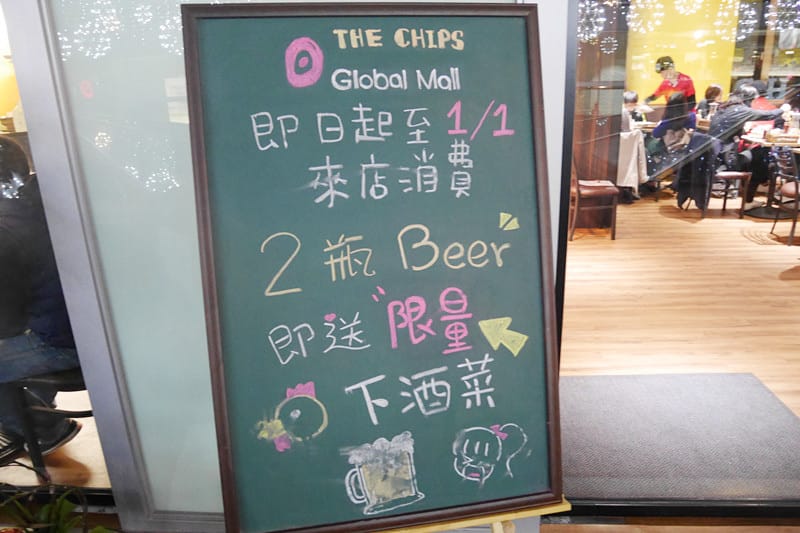 THE CHIPS
Global Mall
即日起至 1/1
來店消費
2 瓶 Beer
即送 "限量
下酒菜